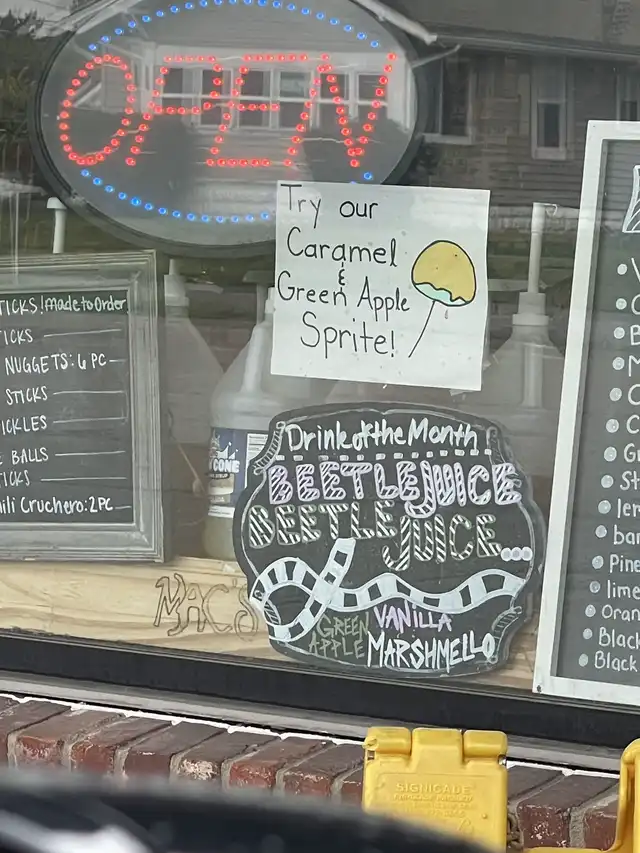 OPEN
Try our
Caramel
&
Green Apple
Sprite!
TICKS! made to Order
TICKS
NUGGETS: 6 PC
STICKS
ICKLES
E BALLS
TICKS
ili Cruchero: 2PC
CONE
Drink of the Month!
BEETLEJUICE
BEETLE
JUICE...
GREEN
APPLE
VANILLA
MARSHMELLO
MAC'S
St
lem
bar
Pine
lime
Oran
Black
Black
SIGNICADE